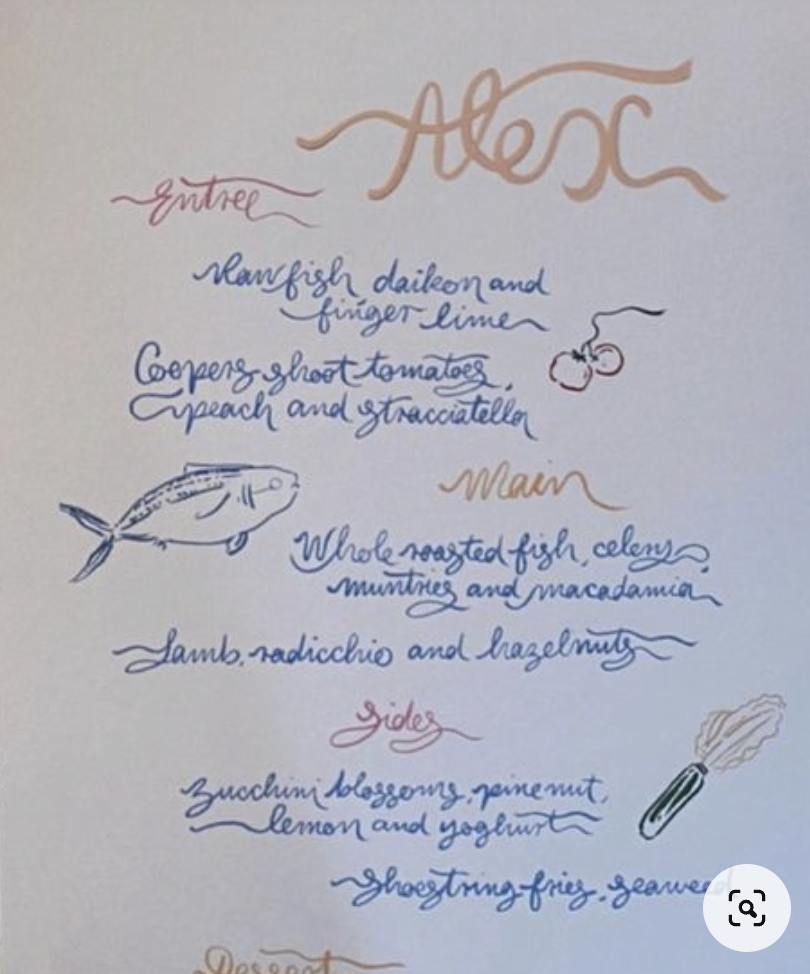 Alex
Entree
Raw fish daikon and
finger lime
Coopers shoot tomatoes,
peach and stracciatella
Main
Whole roasted fish, celery,
muntries and macadamia
Lamb, radicchio and hazelnuts
Sides
Zucchini blossoms, pinenut,
lemon and yoghurt
Shoestring fries, seaweed
Dessert